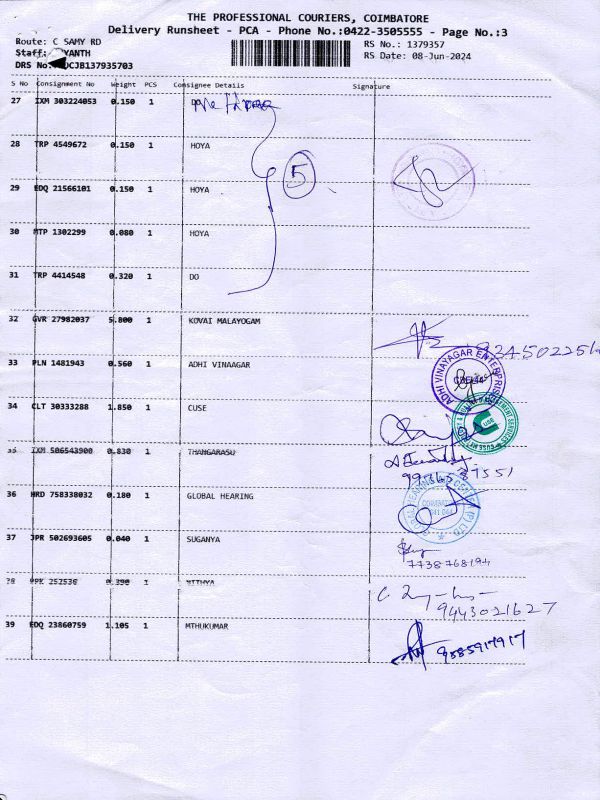 THE PROFESSIONAL COURIERS, COIMBATORE
Delivery Runsheet - PCA - Phone No.:0422-3505555 - Page No.:3
Route: C SAMY RD
RS No.: 1379357
Staff: YANTH
RS Date: 08-Jun-2024
DRS No: DCJB137935703
S No Consignment No Weight PCS Consignee Details Signature
27 IXM 303224053 0.150 1
28 TRP 4549672 0.150 1 HOYA
29 EDQ 21566101 0.150 1 HOYA
5
30 MTP 1302299 0.080 1 HOYA
31 TRP 4414548 0.320 1 DO
32 GVR 27982037 5.800 1 KOVAI MALAYOGAM
33 PLN 1481943 0.560 1 ADHI VINAAGAR
ADHI VINAYAGAR ENTERPRISES
34 CLT 30333288 1.850 1 CUSE
35 IXM 506543900 0.830 1 THANGARASU
36 HRD 758338032 0.180 1 GLOBAL HEARING
37 JPR 502693605 0.040 1 SUGANYA
7738768194
38 PPK 252536 0.390 1 NITHYA
9443021627
39 EDQ 23860759 1.105 1 MTHUKUMAR
9585917917